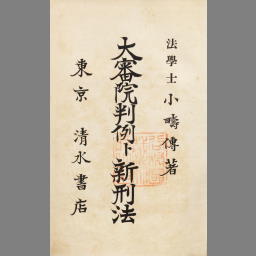 法學士 小疇傳著
大審院判例ト新刑法
東京 清水書店